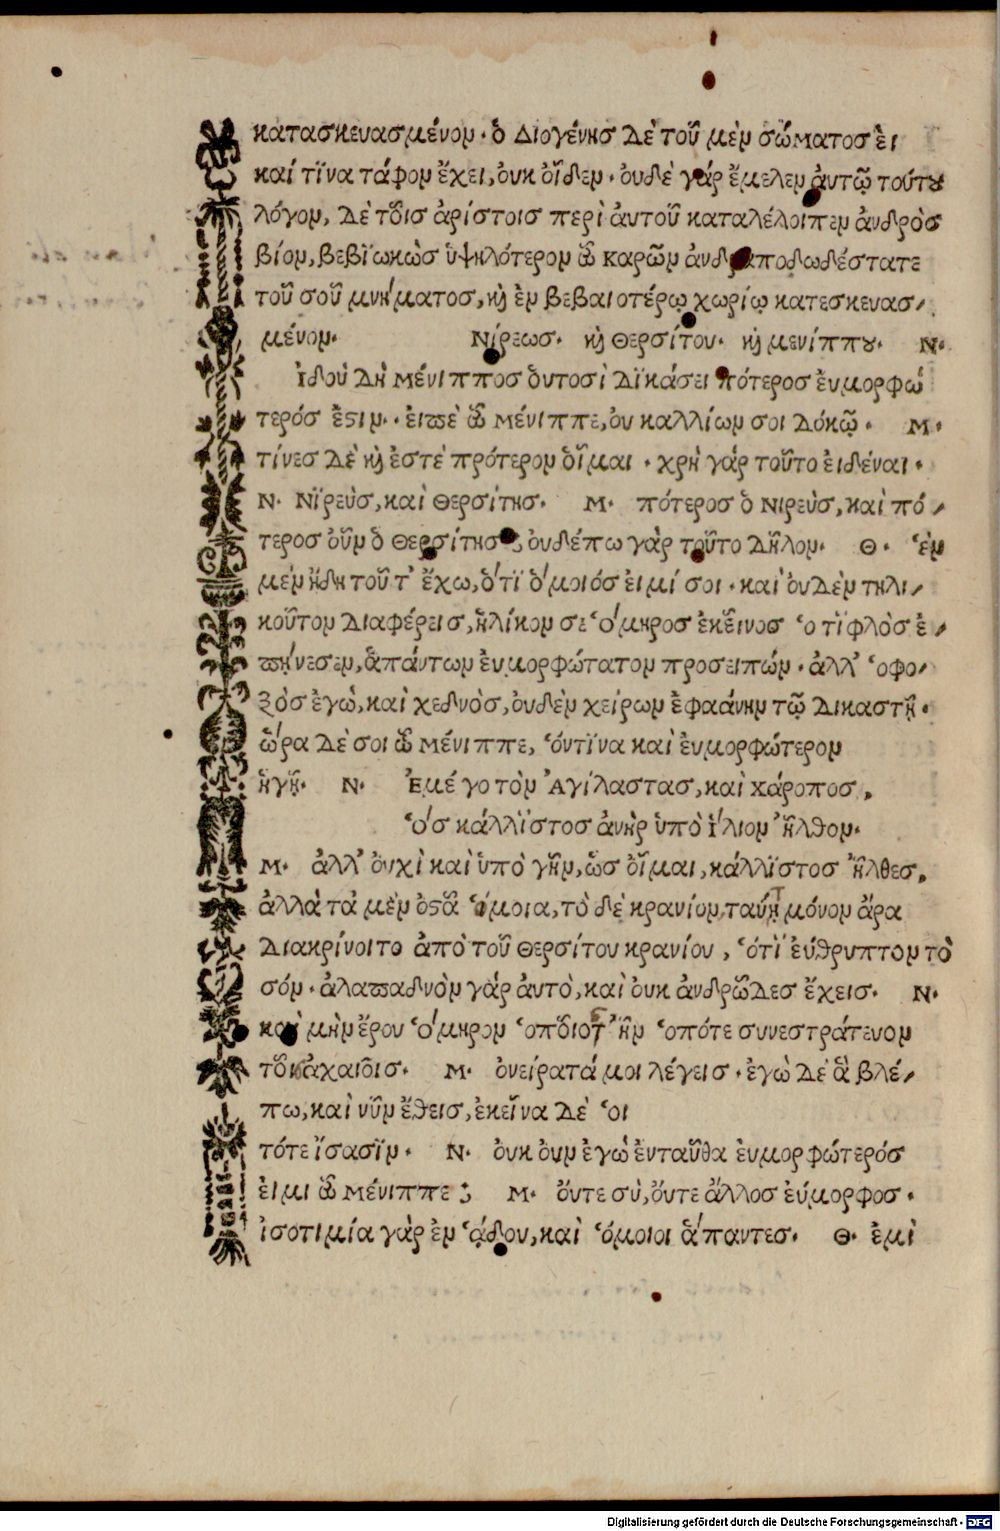 κατασκευασμένον. ὁ Διογένης δὲ τοῦ μὲν σώματος ἒι
καί τϊνα τάφον ἔχει, ὀυκ ὀἶδεν. ὀυδὲ γὰρ ἔμελεν ἀυτῷ τούτου
λόγον, δὲ τοῖς ἀρίστοις περὶ ἀυτοῦ καταλέλοιπεν ἀνδρὸς
βίον, βεβϊωκὼς ὑψηλότερον ὦ καρῶν ἀνδραποδωδέστατε
τοῦ σοῦ μνήματος, κὴ ἐν βεβαιοτέρῳ χωρίῳ κατεσκευασ/
μένον. Νίρεως. κὴ Θερσίτου. κὴ μενίππου. Ν.
Ἰδοὺ δὴ Μένιππος ὁυτοσὶ δϊκάσει πότερος ἐυμορφώ
τερός ἐστιν.. ἐιπὲ ὦ Μένιππε, ὀυ καλλίων σοι δόκῷ. Μ.
τίνες δὲ κὴ ἐστέ πρότερον ὃἶμαι. χρὴ γάρ τοῦτο ἐιδέναι.
Ν. Νϊρεὺς, καὶ Θερσίτης. Μ. πότερος ὁ Νιρεὺς, καὶ πό/
τερος ὀῦν ὁ Θερσίτης; ὀυδέπω γὰρ τοῦτο δῆλον. Θ. ἑν
μὲν ἤδη τοῦτ' ἔχω, ὅτϊ ὅμοιός ἐιμί σοι. καὶ ὀυδὲν τηλι/
κοῦτον διαφέρεις, ἡλίκον σε Ὅμηρος ἐκεῖνος ὁ τϊφλὸς ἐ/
πήνεσεν, ἁπάντων ἐυμορφώτατον προσειπών. ἀλλ' ὁφο/
ξὸς ἐγὼ, καὶ χεδνὸς, ὀυδὲν χείρων ἐφαάνην τῷ δικαστῇ.
ὥρα δέ σοι ὦ Μένιππε, ὅντϊνα καὶ ἐυμορφώτερον
ἡγῇ. Ν. Ἐμέ γο τὸν Ἀγίλαστας, καὶ Χάροπος,
Ὅς κάλλϊστος ἀνὴρ ὑπὸ ἵλιον ἦλθον.
Μ. ἀλλ' ὀυχὶ καὶ ὑπὸ γῆν, ὡς ὀἶμαι, κάλλϊστος ἦλθες,
ἀλλὰ τὰ μὲν ὀστᾶ ὅμοια, τὸ δὲ κρανίον, ταύτῃ μόνον ἄρα
διακρίνοιτο ἀπὸ τοῦ Θερσίτου κρανίου, ὅτϊ ἐύθρυπτον τὸ
σόν. ἀλαπαδνὸν γάρ ἀυτὸ, καὶ ὀυκ ἀνδρῶδες ἔχεις. Ν.
καὶ μὴν ἔρου Ὅμηρον ὁποῖος ἦν ὁπότε συνεστράτευον
τοῖς ἀχαιοῖς. Μ. ὀνείρατά μοι λέγεις. ἐγὼ δὲ ἃ βλέ/
πω, καὶ νῦν ἔθεις, ἐκεῖνα δὲ ὁι
τότε ἴσασϊν. Ν. ὀυκ ὀυν ἐγὼ ἐνταῦθα ἐυμορφώτερός
ἐιμι ὦ Μένιππε; Μ. ὄυτε σὺ, ὄυτε ἄλλος ἐύμορφος.
ἰσοτιμία γὰρ ἐν ᾅδου, καὶ ὅμοιοι ἅπαντες. Θ. ἐμὶ
Digitalisierung gefördert durch die Deutsche Forschungsgemeinschaft - DFG